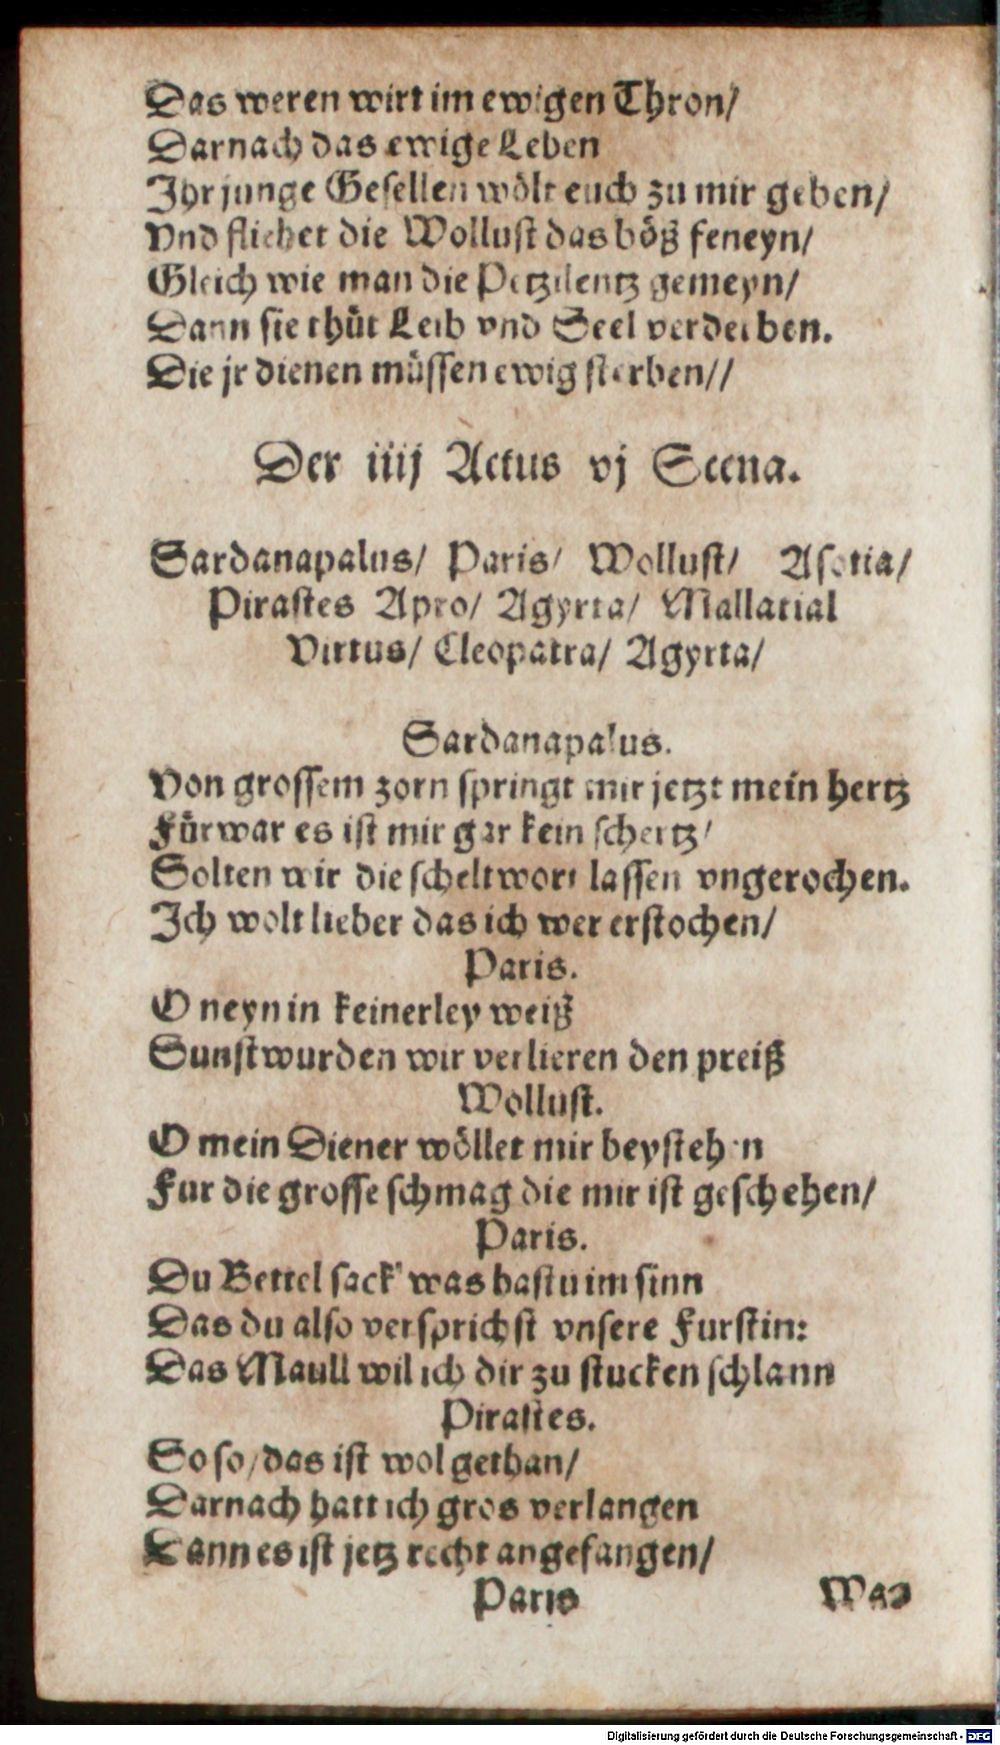 Das weren wirt im ewigen Thron/
Darnach das ewige Leben
Ihr junge Gesellen wölt euch zu mir geben/
Vnd fliehet die Wollust das böß feneyn/
Gleich wie man die Petzilentz gemeyn/
Dann sie thüt Leib vnd Seel verderben.
Die jr dienen müssen ewig sterben//
Der iiij Actus vj Scena.
Sardanapalus/ Paris/ Wollust/ Asotia/
Pirastes Apro/ Agyrta/ Mallatial
Virtus/ Cleopatra/ Agyrta/
Sardanapalus.
Von grossem zorn springt mir jetzt mein hertz
Fürwar es ist mir gar kein schertz/
Solten wir die scheltwort lassen vngerochen.
Ich wolt lieber das ich wer erstochen/
Paris.
O neyn in keinerley weiß
Sunst wurden wir verlieren den preiß
Wollust.
O mein Diener wöllet mir beystehen
Fur die grosse schmag die mir ist geschehen/
Paris.
Du Bettel sack was hastu im sinn
Das du also versprichst vnsere Furstin:
Das Maull wil ich dir zu stucken schlann
Pirastes.
So so/das ist wol gethan/
Darnach hatt ich gros verlangen
Dann es ist jetz recht angefangen/
Paris Was
Digitalisierung gefördert durch die Deutsche Forschungsgemeinschaft - DFG